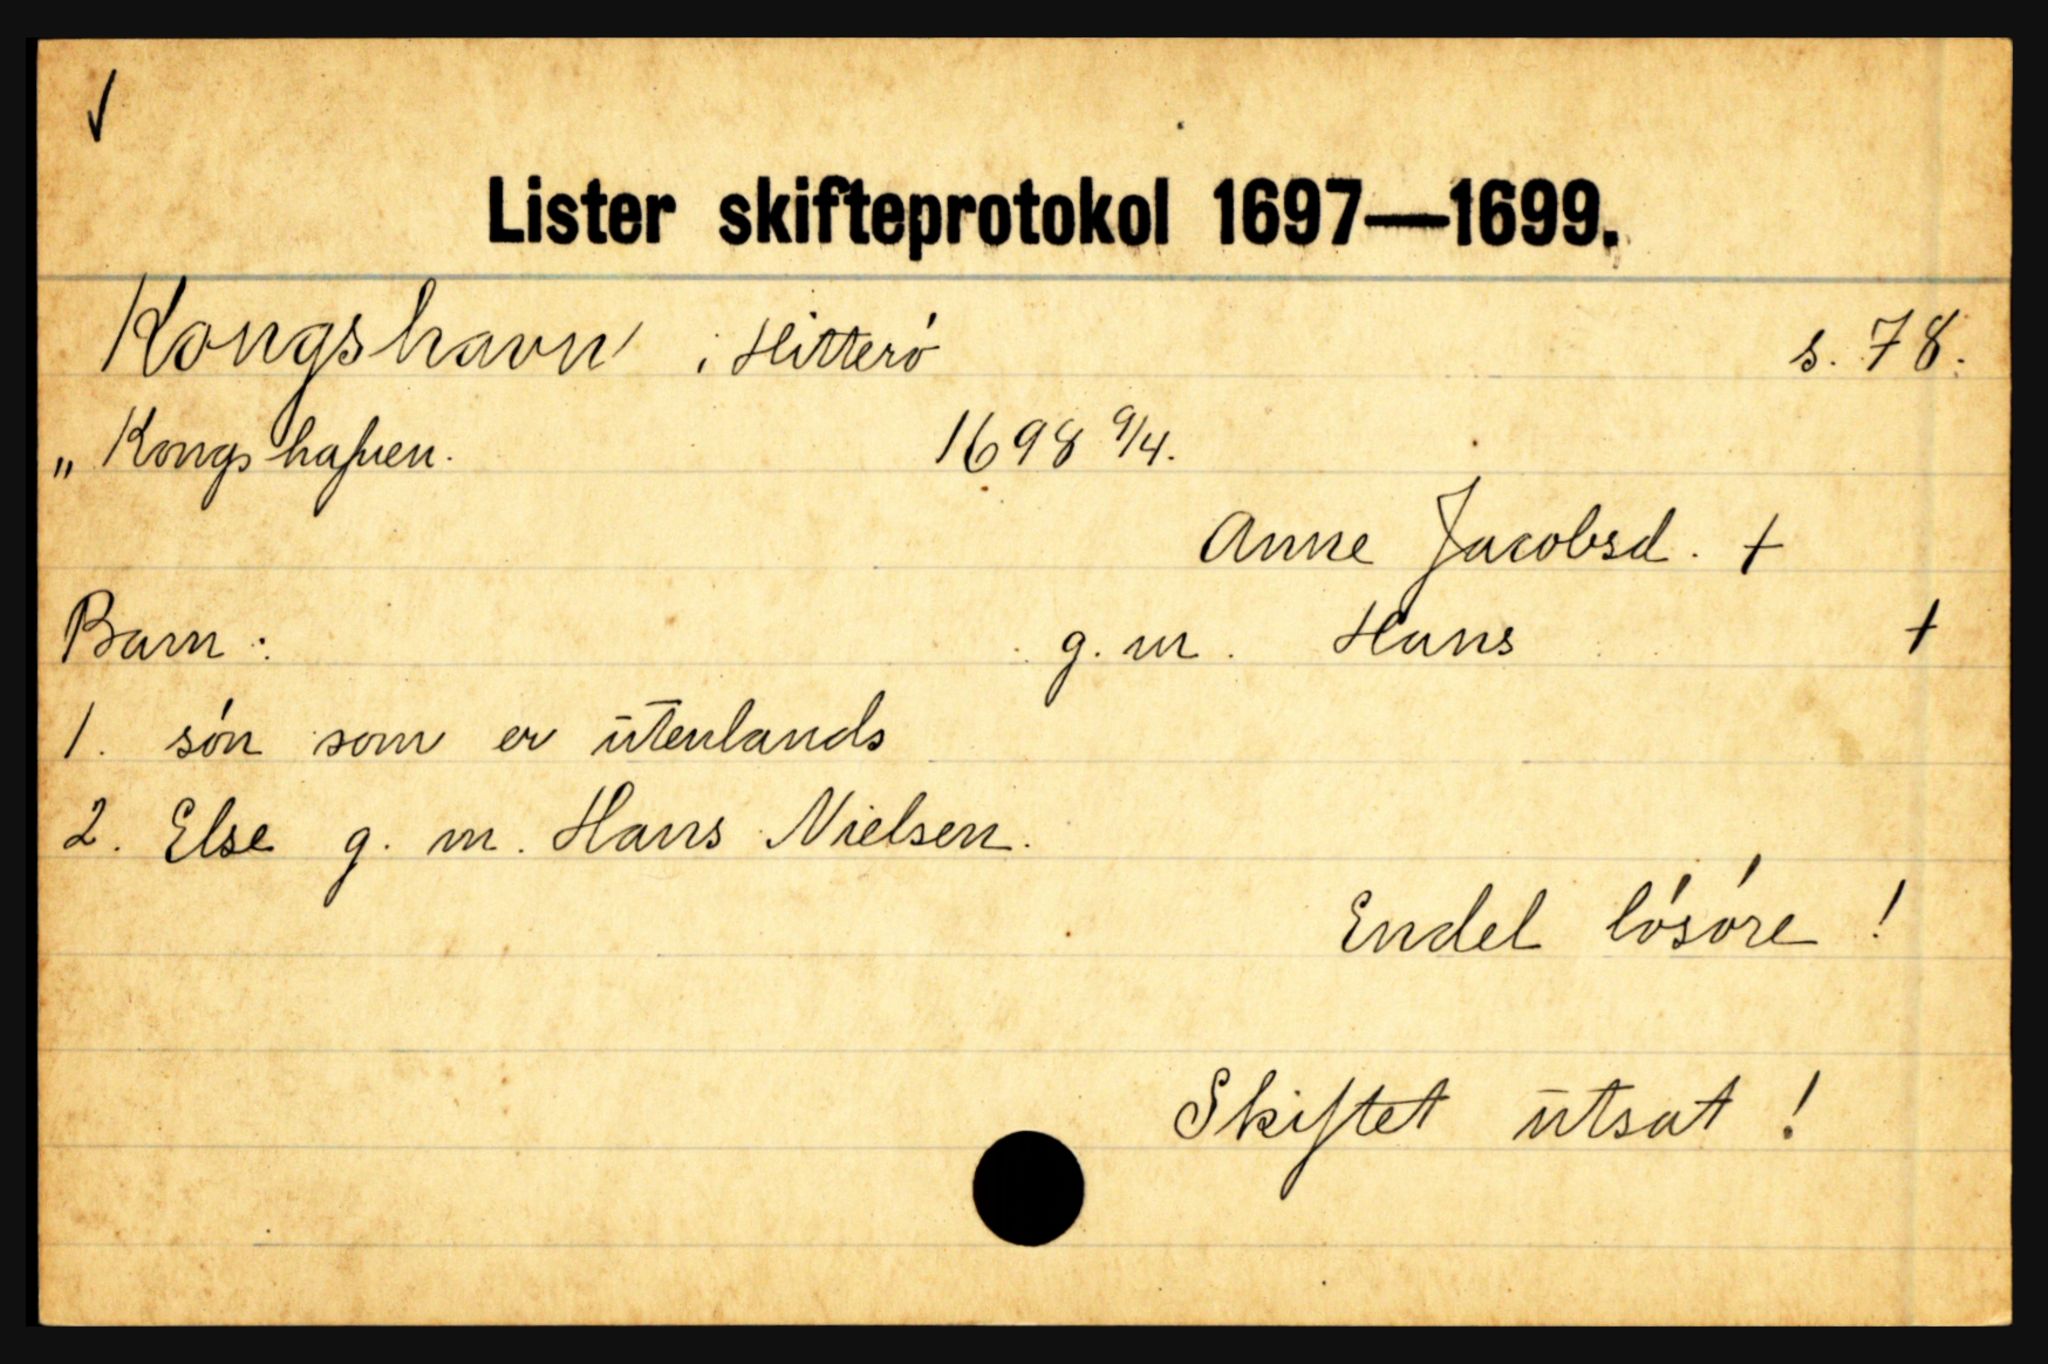 ✓
Lister skifteprotokol 1697—1699.
Kongshavn i Hitterö s. 78.
„ Kongshafuen. 1698 9/4.
Anne Jacobsd. †
Barn: g. m. Hans †
1. sön som er utenlands
2. Else g. m. Hans Nielsen.
Endel lösöre!
Skiftet utsat!